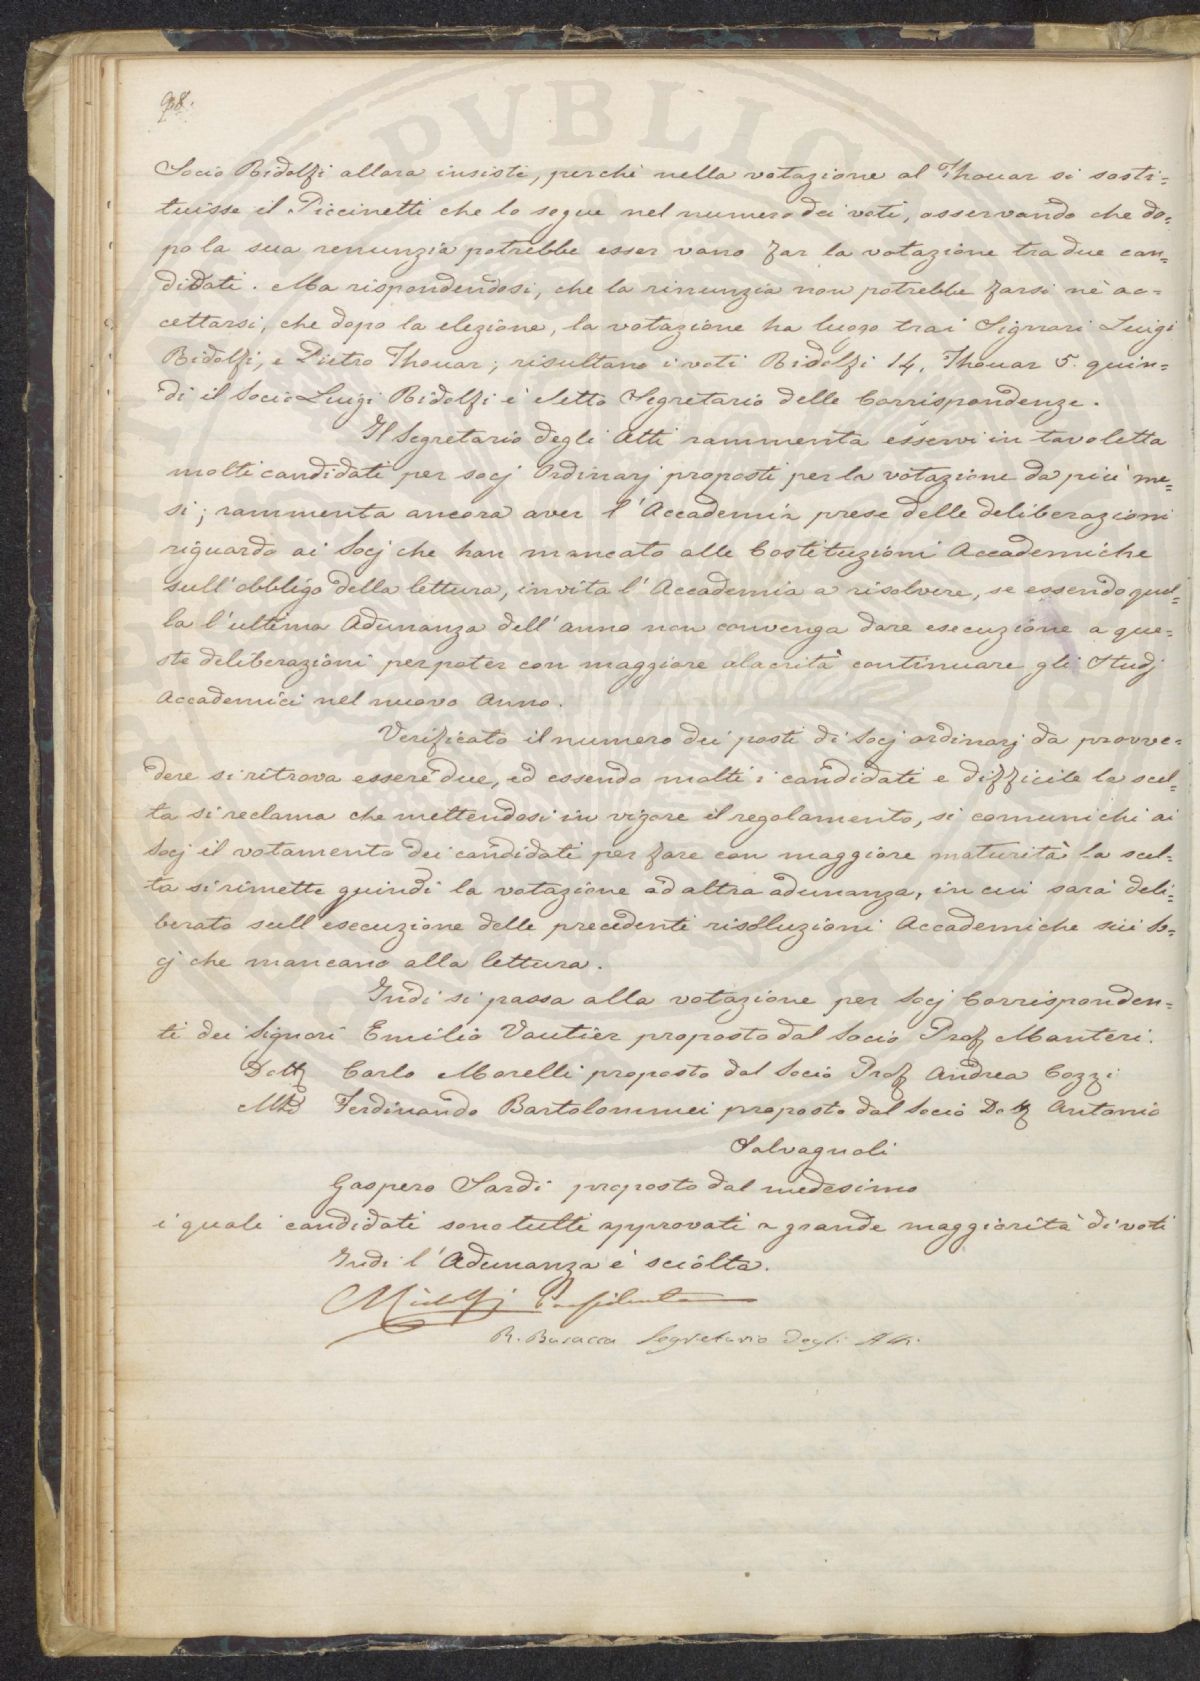 98.
Socio Ridolfi allora insistè, perchè nella votazione al Thouar si sosti=
tuisse il Piccinetti che lo segue nel numero dei voti, osservando che do=
po la sua renunzia potrebbe esser vano far la votazione tra due can=
didati. Ma rispondendosi, che la rinunzia non potrebbe farsi nè ac=
cettarsi, che dopo la elezione, la votazione ha luogo trai Signori Luigi
Ridolfi, e Pietro Thouar; risultano i voti Ridolfi 14, Thouar 5. quin=
di il Socio Luigi Ridolfi è eletto Segretario delle Corrispondenze.
Il Segretario degli Atti rammenta esservi in tavoletta
molti candidati per socj Ordinarj proposti per la votazione da più me=
si; rammenta ancora aver l'Accademia prese delle deliberazioni
riguardo ai Socj che han mancato alle Costituzioni Accademiche
sull'obbligo della lettura, invita l'Accademia a risolvere, se essendo quel=
la l'ultima Adunanza dell'anno non convenga dare esecuzione a que=
ste deliberazioni per poter con maggiore alacrità continuare gli Studj
Accademici nel nuovo Anno.
Verificato il numero dei posti di Socj ordinarj da provve=
dere si ritrova essere due, ed essendo molti i candidati e difficile la scel=
ta si reclama che mettendosi in vigore il regolamento, si comunichi ai
Socj il votamento dei candidati per fare con maggiore maturità la scel=
ta si rimette quindi la votazione ad altra adunanza, in cui sarà deli=
berato sull'esecuzione delle precedenti risoluzioni Accademiche sui So=
cj che mancano alla lettura.
Indi si passa alla votazione per Socj Corrisponden=
ti dei Signori Emilio Vautier proposto dal Socio Prof Manteri.
Dott Carlo Morelli proposto dal Socio Prof Andrea Cozzi
Ferdinando Bartolommei proposto dal Socio Dott Antonio
Salvagnoli
Gaspero Sardi proposto dal medesimo
i quali candidati sono tutti approvati a grande maggiorità di voti
Indi l'Adunanza è sciolta.
Ridolfi Presidente
R. Busacca Segretario degli Atti.
PVBLIC